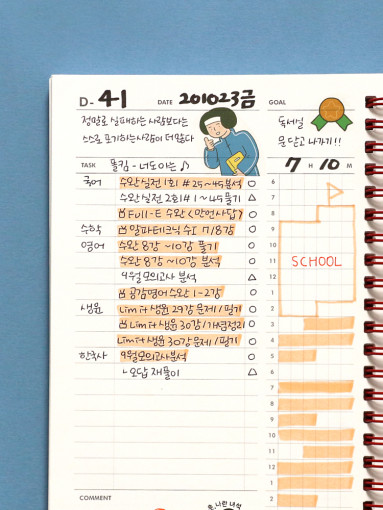 D-41 DATE 201023금 GOAL
정말로 실패하는 사람보다는
스스로 포기하는 사람이 더 많다
독서실
문 닫고 나가기!!
TASK 플킴 - 너도아는 ♪ 7 H 10 M
국어 수완 실전 1회 #25~45 분석 ○
수완 실전 2회 #1~45 풀기 △
Full-E 수완 <만언사답> ○
수학 알파테크닉 수I 7/8강 ○
영어 수완 8강~10강 풀기 ○
수완 8강~10강 분석 ○
9월 모의고사 분석 △
공감영어 수완 1-2강 ○
생윤 Limit 생윤 29강 문제/필기 ○
Limit 생윤 30강/개념정리 ○
Limit 생윤 30강 문제/필기 ○
한국사 9월 모의고사 분석 ○
ㄴ오답 재풀이 △
6
7
8
9
10
11
12
1
2
3
4
5
6
7
8
9
10
11
12
1
2
SCHOOL
COMMENT
나란 녀석